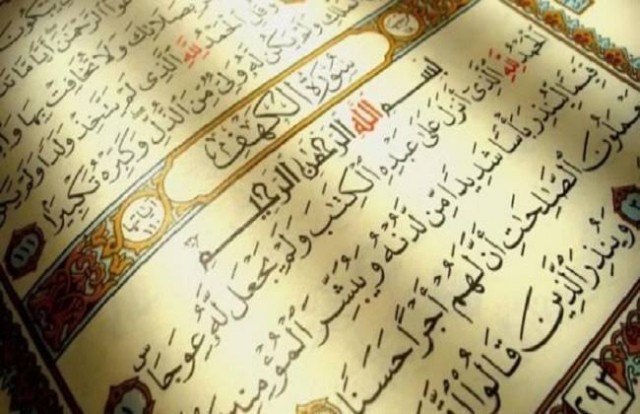 الرَّحْمَٰنَ أَيًّا مَّا تَد
بِصَلَاتِكَ وَلَا تُخَافِتْ بِهَا وَا
وَقُلِ الْحَمْدُ لِلَّهِ الَّذِي لَمْ يَتَّخِذْ وَلَدًا وَلَمْ يَكُن
وَلَمْ يَكُن لَّهُ وَلِيٌّ مِّنَ الذُّلِّ وَكَبِّرْهُ تَكْبِيرًا ١١١
سُورَةُ الْكَهْفِ
بِسْمِ اللَّهِ الرَّحْمَٰنِ الرَّحِيمِ
الْحَمْدُ لِلَّهِ الَّذِي أَنزَلَ عَلَىٰ عَبْدِهِ الْكِتَابَ وَلَمْ يَجْعَل لَّهُ عِوَجًا ۜ
قَيِّمًا لِّيُنذِرَ بَأْسًا شَدِيدًا مِّن لَّدُنْهُ وَيُبَشِّرَ الْمُؤْمِنِينَ
يَعْمَلُونَ الصَّالِحَاتِ أَنَّ لَهُمْ أَجْرًا حَسَنًا
وَيُنذِرَ الَّذِينَ قَالُوا
٢٩٣